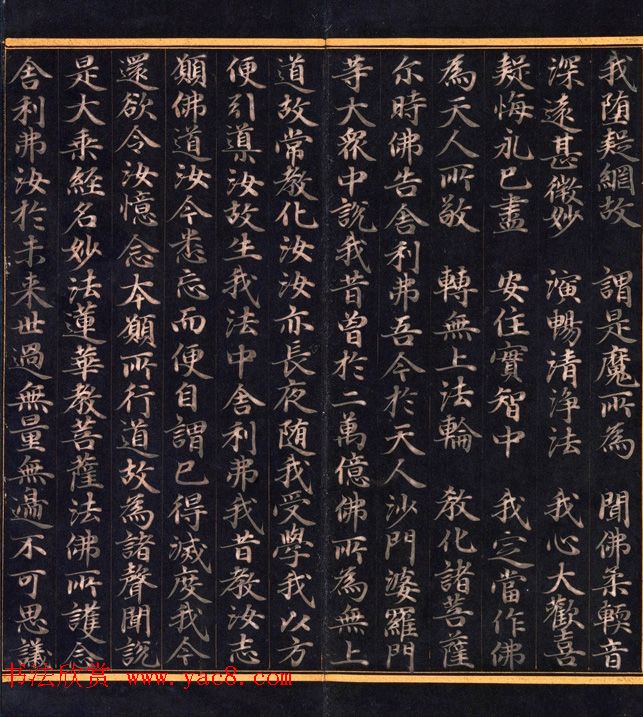 我堕疑網故 謂是魔所為 聞佛柔輭音
深遠甚微妙 演暢清淨法 我心大歡喜
疑悔永已盡 安住實智中 我定當作佛
為天人所敬 轉無上法輪 教化諸菩薩
尒時佛告舍利弗吾今於天人沙門婆羅門
等大眾中說我昔曾於二萬億佛所為無上
道故常教化汝汝亦長夜随我受學我以方
便引導汝故生我法中舍利弗我昔教汝志
願佛道汝今悉忘而便自謂已得滅度我今
還欲令汝憶念本願所行道故為諸聲聞說
是大乘經名妙法蓮華教菩薩法佛所護念
舍利弗汝於未来世過無量無邊不可思議
书法欣赏 www.yac8.com